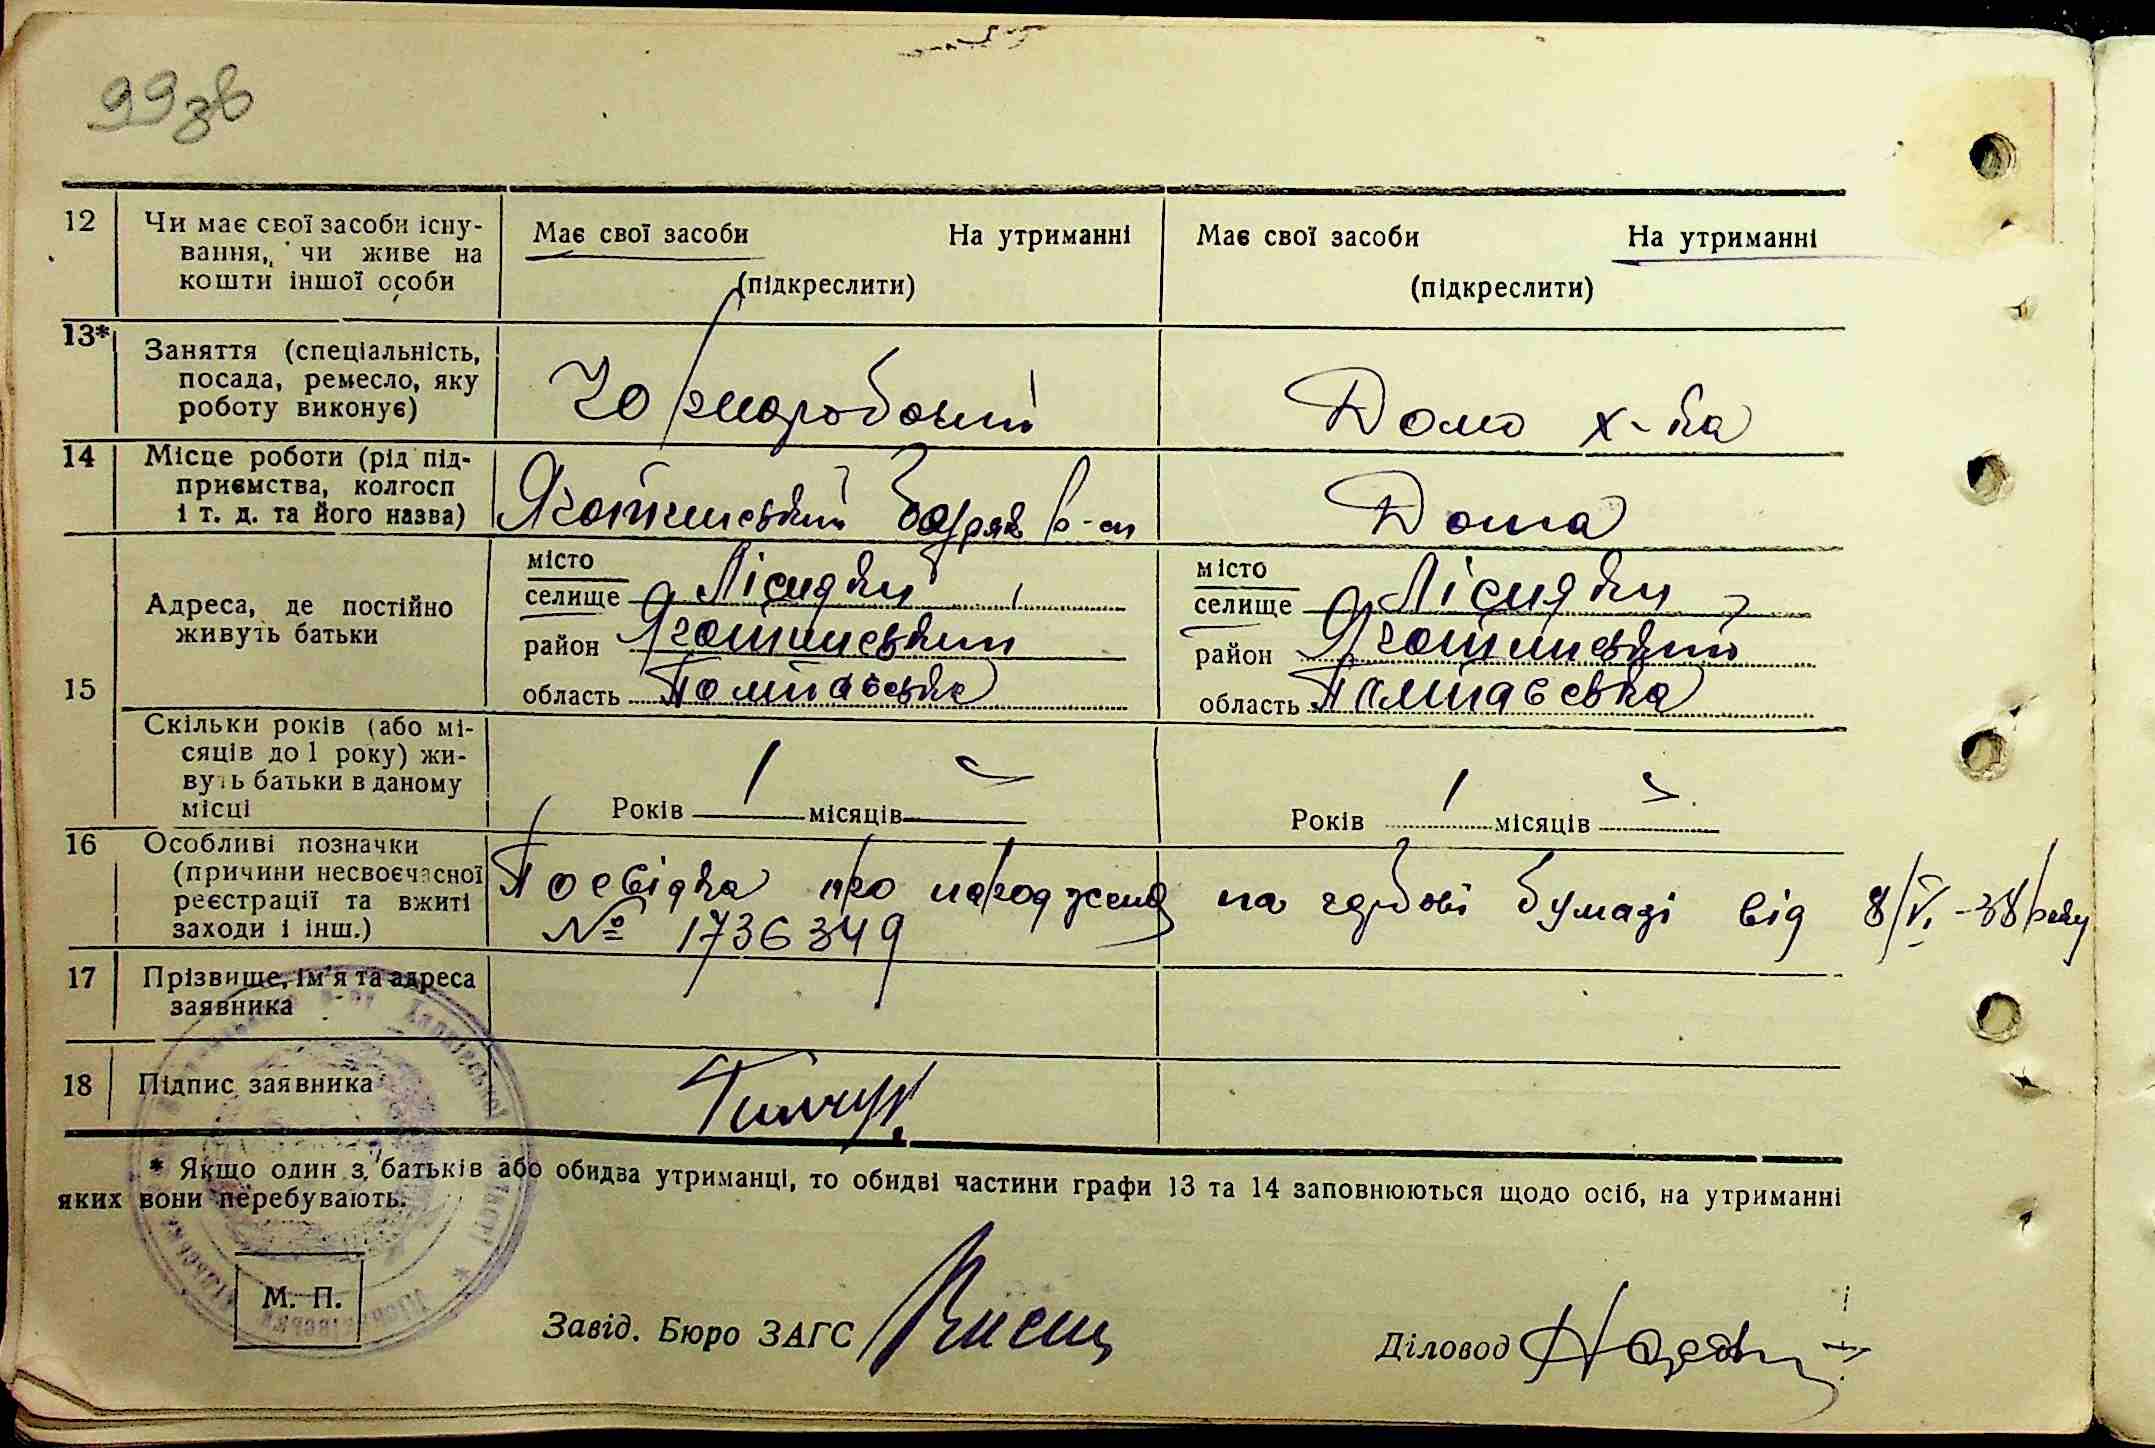 99зв
12 Чи має свої засоби існу- Має свої засоби На утриманні Має свої засоби На утриманні
вання, чи живе на
кошти іншої особи (підкреслити) (підкреслити)
13* Заняття (спеціальність,
посада, ремесло, яку Чорноробочий Домо х-ка
роботу виконує)
14 Місце роботи (рід під-
приємства, колгосп
і т. д. та його назва) Яготинський Дома
місто місто
селище селище
Адреса, де постійно
живуть батьки район Яготинський район Яготинський
15 область Полтавська область Полтавська
Скільки років (або мі-
сяців до 1 року) жи-
вуть батьки в даному
місці Років 1 місяців – Років 1 місяців –
16 Особливі позначки
(причини несвоєчасної Посвідка про народженя на гербові бумазі від 8/VI-38 року
реєстрації та вжиті № 1736349
заходи і інш.)
17 Прізвище, ім'я та адреса
заявника
18 Підпис заявника
* Якщо один з батьків або обидва утриманці, то обидві частини графи 13 та 14 заповнюються щодо осіб, на утриманні
яких вони перебувають.
М. П.
Завід. Бюро ЗАГС
Діловод